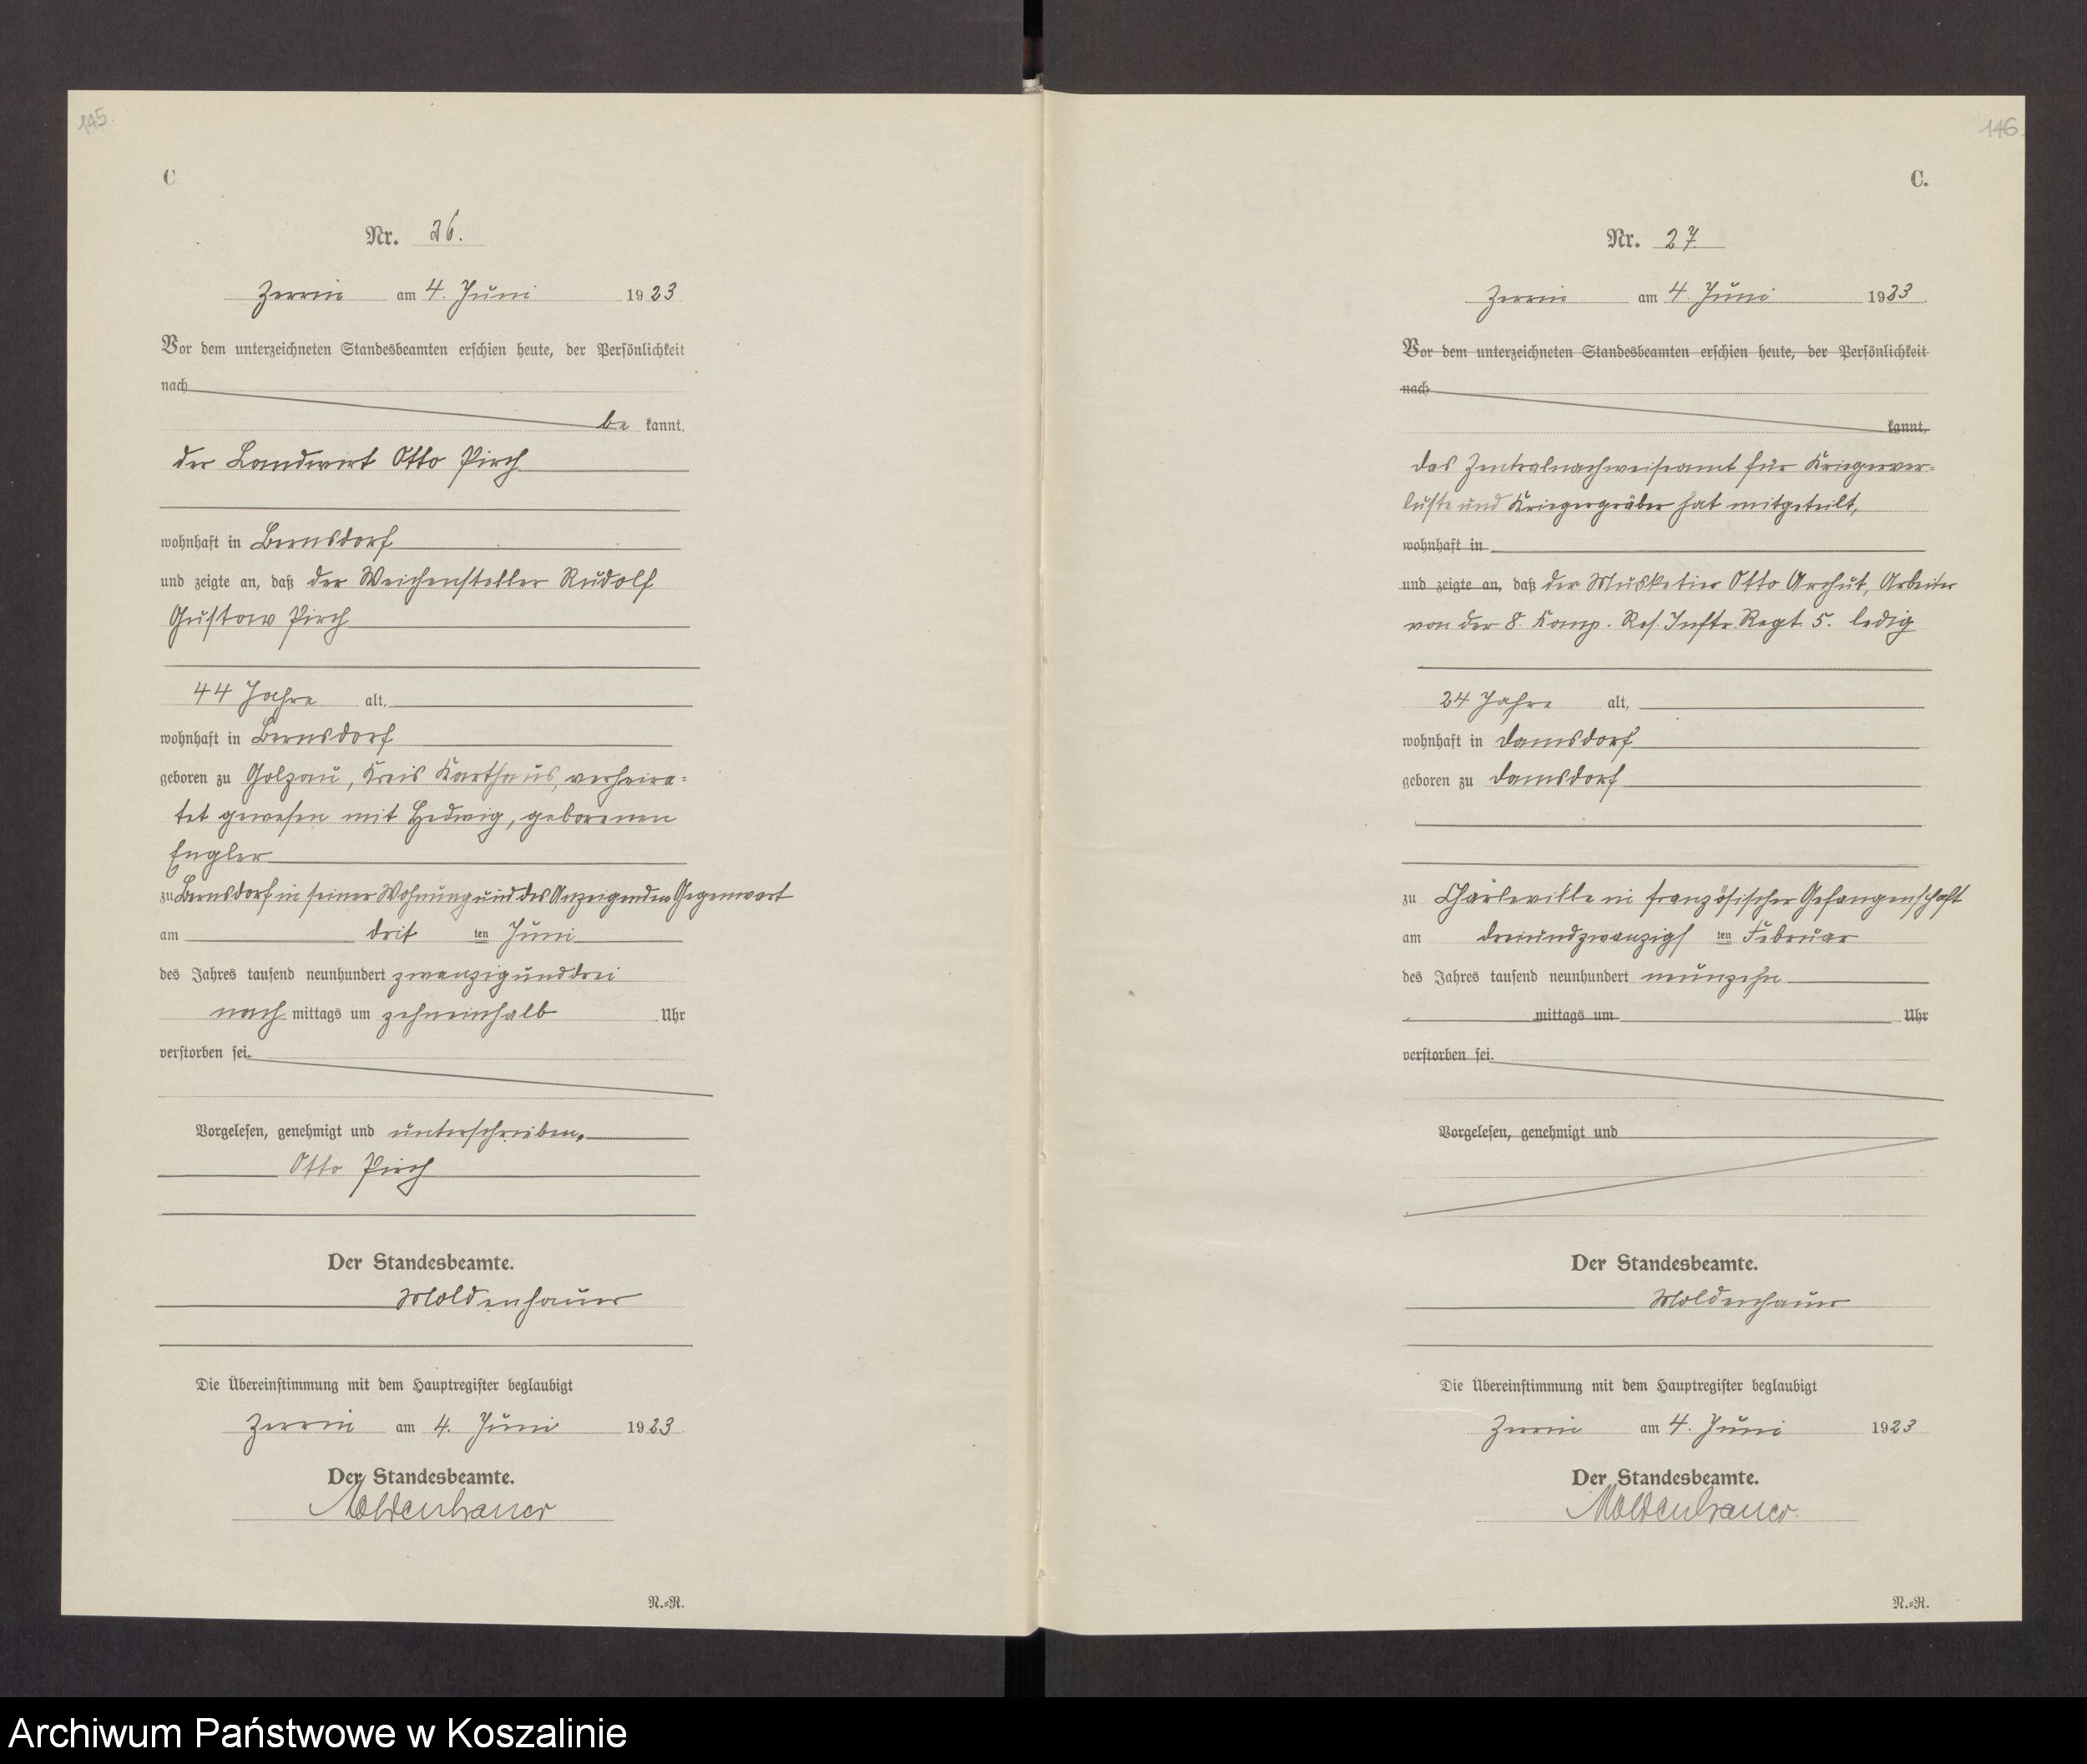 145.
C
Nr. 26.
Zerrin am 4. Juni 1923
Vor dem unterzeichneten Standesbeamten erschien heute, der Persönlichkeit
nach
be kannt,
der Landwirt Otto Pirch
wohnhaft in Bernsdorf
und zeigte an, daß der Weichensteller Rudolf
Gustav Pirch
44 Jahre alt,
wohnhaft in Bernsdorf
geboren zu Golzau, Kreis Karthaus, verheira-
tet gewesen mit Hedwig, geborenen
Engler
zu Bernsdorf in seiner Wohnung und des Anzeigenden Gegenwart
am drit ten Juni
des Jahres tausend neunhundert zwanzigunddrei
nach mittags um zehneinhalb Uhr
verstorben sei.
Vorgelesen, genehmigt und unterschrieben.
Otto Pirch
Der Standesbeamte.
Moldenhauer
Die Übereinstimmung mit dem Hauptregister beglaubigt
Zerrin am 4. Juni 1923
Der Standesbeamte.
Moldenhauer
N.=R.
146.
C.
Nr. 27
Zerrin am 4. Juni 1923
Vor dem unterzeichneten Standesbeamten erschien heute, der Persönlichkeit
nach
kannt,
das Zentralnachweiseamt für Kriegerver-
luste und Kriegergräber hat mitgeteilt,
wohnhaft in
und zeigte an, daß der Musketier Otto Archut, Arbeiter
von der 8. Komp. Res. Inftr. Regt. 5. ledig
24 Jahre alt,
wohnhaft in Damsdorf
geboren zu Damsdorf
zu Charleville in französischer Gefangenschaft
am dreiundzwanzigs ten Februar
des Jahres tausend neunhundert neunzehn
mittags um Uhr
verstorben sei.
Vorgelesen, genehmigt und
Der Standesbeamte.
Moldenhauer
Die Übereinstimmung mit dem Hauptregister beglaubigt
Zerrin am 4. Juni 1923
Der Standesbeamte.
Moldenhauer.
N.=R.
Archiwum Państwowe w Koszalinie